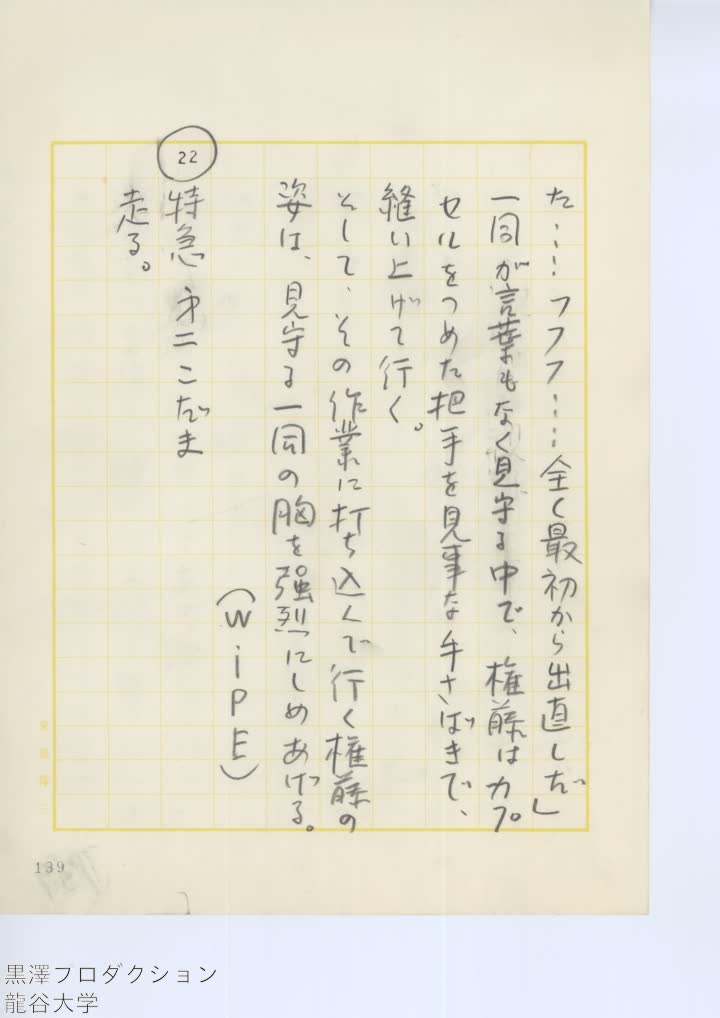 た……フフフ……全く最初から出直しだ」
一同が言葉もなく見守る中で、権藤はカプ
セルをつめた把手を見事な手さばきで、
縫い上げて行く。
そして、その作業に打ち込んで行く権藤の
姿は、見守る一同の胸を強烈にしめあげる。
(WiPE)
22
特急 㐧二こだま
走る。
139
黒澤プロダクション
龍谷大学